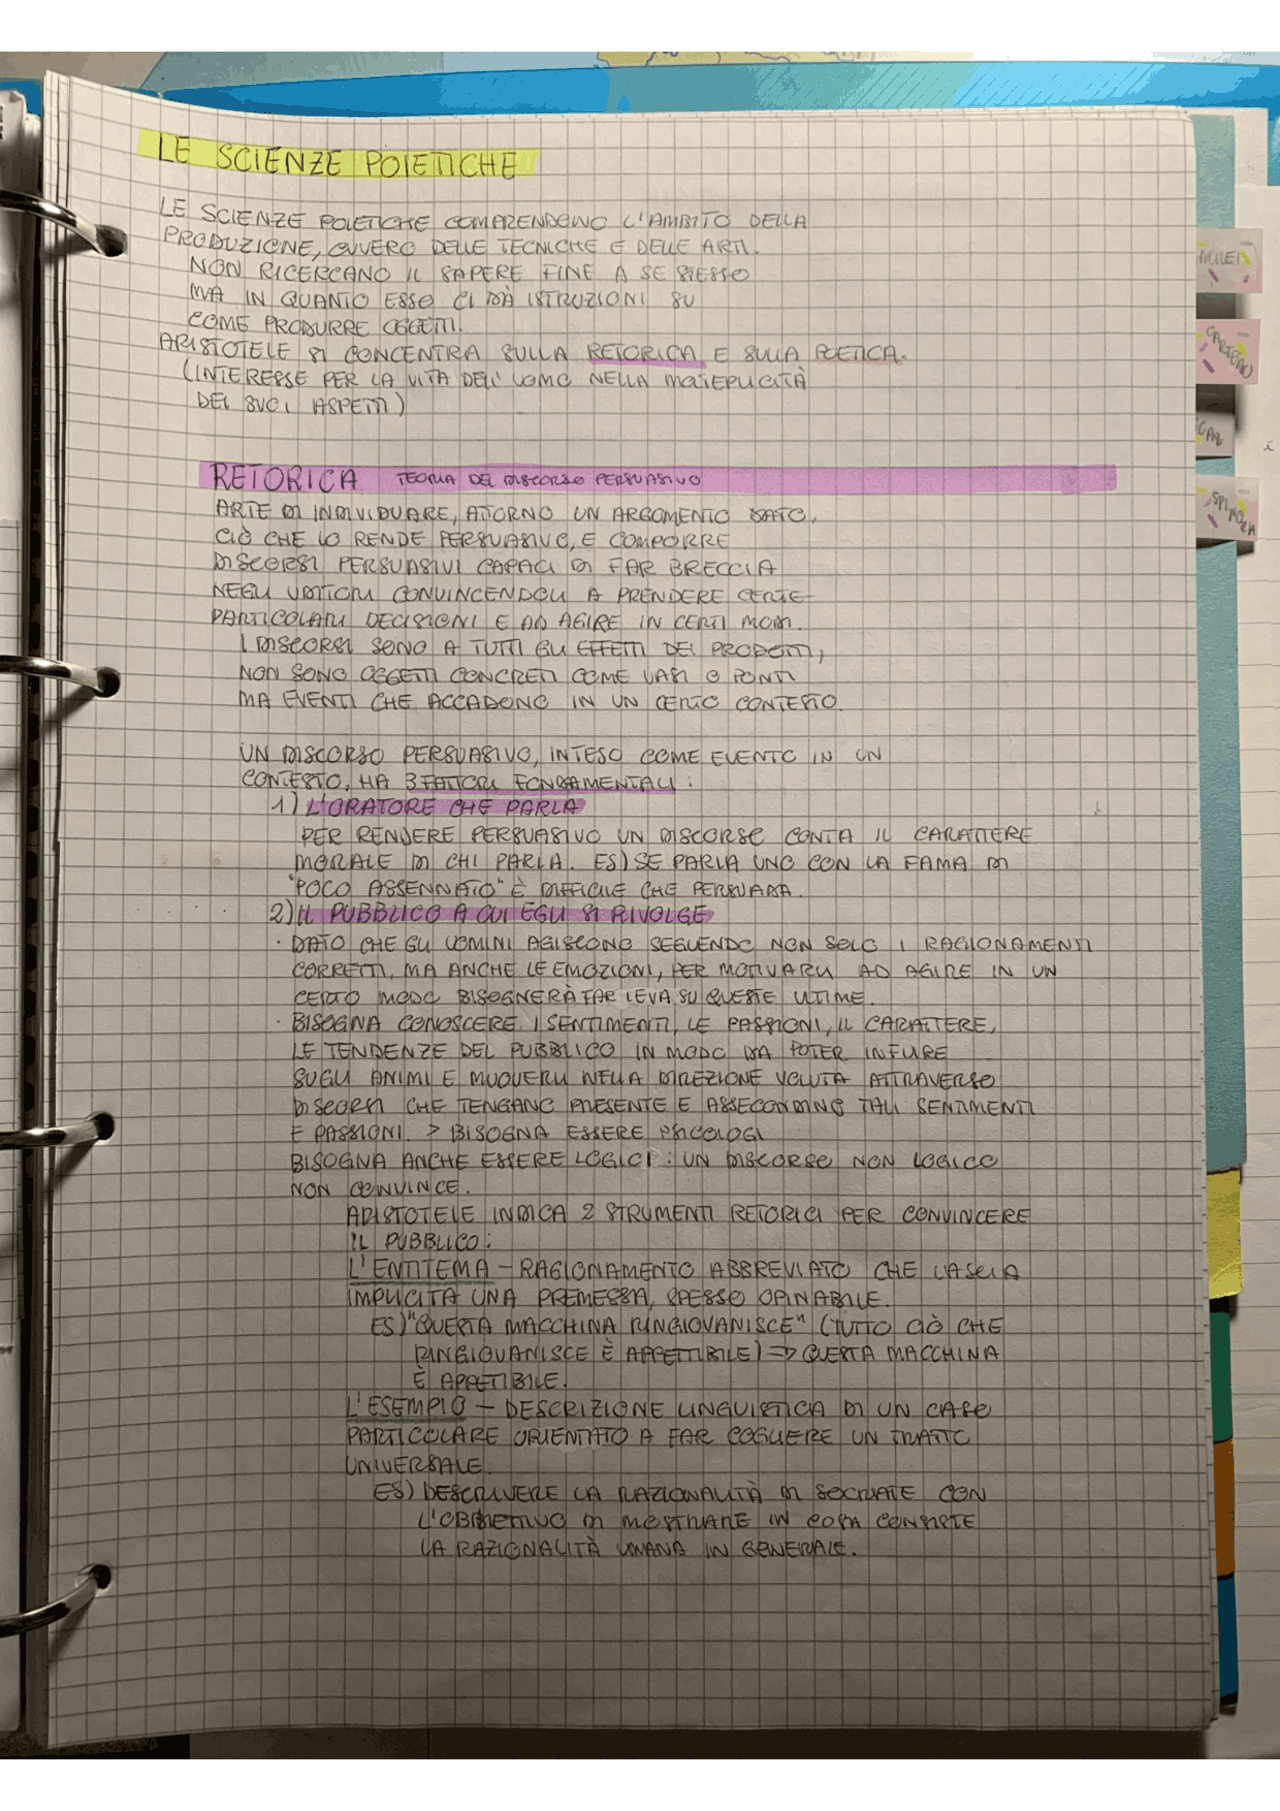 LE SCIENZE POIETICHE
LE SCIENZE POIETICHE COMPRENDONO L'AMBITO DELLA
PRODUZIONE, OVVERO DELLE TECNICHE E DELLE ARTI.
NON RICERCANO IL SAPERE FINE A SE STESSO
MA IN QUANTO ESSO CI DÀ ISTRUZIONI SU
COME PRODURRE OGGETTI.
ARISTOTELE SI CONCENTRA SULLA RETORICA E SULLA POETICA.
(INTERESSE PER LA VITA DELL'UOMO NELLA MOLTEPLICITÀ
DEI SUOI ASPETTI)
RETORICA TEORIA DEL DISCORSO PERSUASIVO
ARTE DI INDIVIDUARE, ATTORNO UN ARGOMENTO DATO,
CIÒ CHE LO RENDE PERSUASIVO, E COMPORRE
DISCORSI PERSUASIVI CAPACI DI FAR BRECCIA
NEGLI UDITORI CONVINCENDOLI A PRENDERE CERTE
PARTICOLARI DECISIONI E AD AGIRE IN CERTI MODI.
I DISCORSI SONO A TUTTI GLI EFFETTI DEI PRODOTTI,
NON SONO OGGETTI CONCRETI COME VASI O PONTI
MA EVENTI CHE ACCADONO IN UN CERTO CONTESTO.
UN DISCORSO PERSUASIVO, INTESO COME EVENTO IN UN
CONTESTO, HA 3 FATTORI FONDAMENTALI:
1) L'ORATORE CHE PARLA
PER RENDERE PERSUASIVO UN DISCORSO CONTA IL CARATTERE
MORALE DI CHI PARLA. ES) SE PARLA UNO CON LA FAMA DI
"POCO ASSENNATO" È DIFFICILE CHE PERSUADA.
2) IL PUBBLICO A CUI EGLI SI RIVOLGE
· DATO CHE GLI UOMINI AGISCONO SEGUENDO NON SOLO I RAGIONAMENTI
CORRETTI, MA ANCHE LE EMOZIONI, PER MOTIVARLI AD AGIRE IN UN
CERTO MODO BISOGNERÀ FAR LEVA SU QUESTE ULTIME.
· BISOGNA CONOSCERE I SENTIMENTI, LE PASSIONI, IL CARATTERE,
LE TENDENZE DEL PUBBLICO IN MODO DA POTER INFLUIRE
SUGLI ANIMI E MUOVERLI NELLA DIREZIONE VOLUTA ATTRAVERSO
DISCORSI CHE TENGANO PRESENTE E ASSECONDINO TALI SENTIMENTI
E PASSIONI. > BISOGNA ESSERE PSICOLOGI
BISOGNA ANCHE ESSERE LOGICI: UN DISCORSO NON LOGICO
NON CONVINCE.
ARISTOTELE INDICA 2 STRUMENTI RETORICI PER CONVINCERE
IL PUBBLICO:
L'ENTITEMA - RAGIONAMENTO ABBREVIATO CHE LASCIA
IMPLICITA UNA PREMESSA, SPESSO OPINABILE.
ES) "QUESTA MACCHINA RINGIOVANISCE" (TUTTO CIÒ CHE
RINGIOVANISCE È APPETTIBILE) => QUESTA MACCHINA
È APPETIBILE.
L'ESEMPIO - DESCRIZIONE LINGUISTICA DI UN CASO
PARTICOLARE ORIENTATO A FAR COGLIERE UN TRATTO
UNIVERSALE.
ES) DESCRIVERE LA RAZIONALITÀ DI SOCRATE CON
L'OBIETTIVO DI MOSTRARE IN COSA CONSISTE
LA RAZIONALITÀ UMANA IN GENERALE.
CARTESIO
SPINOZA